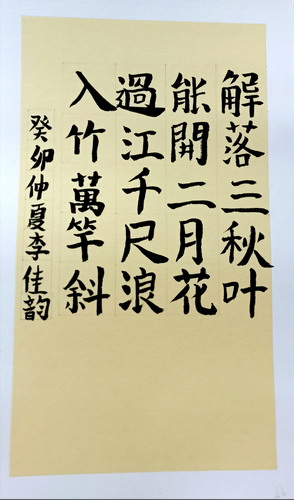 解落三秋叶
能開二月花
過江千尺浪
入竹萬竿斜
癸卯仲夏李佳韵